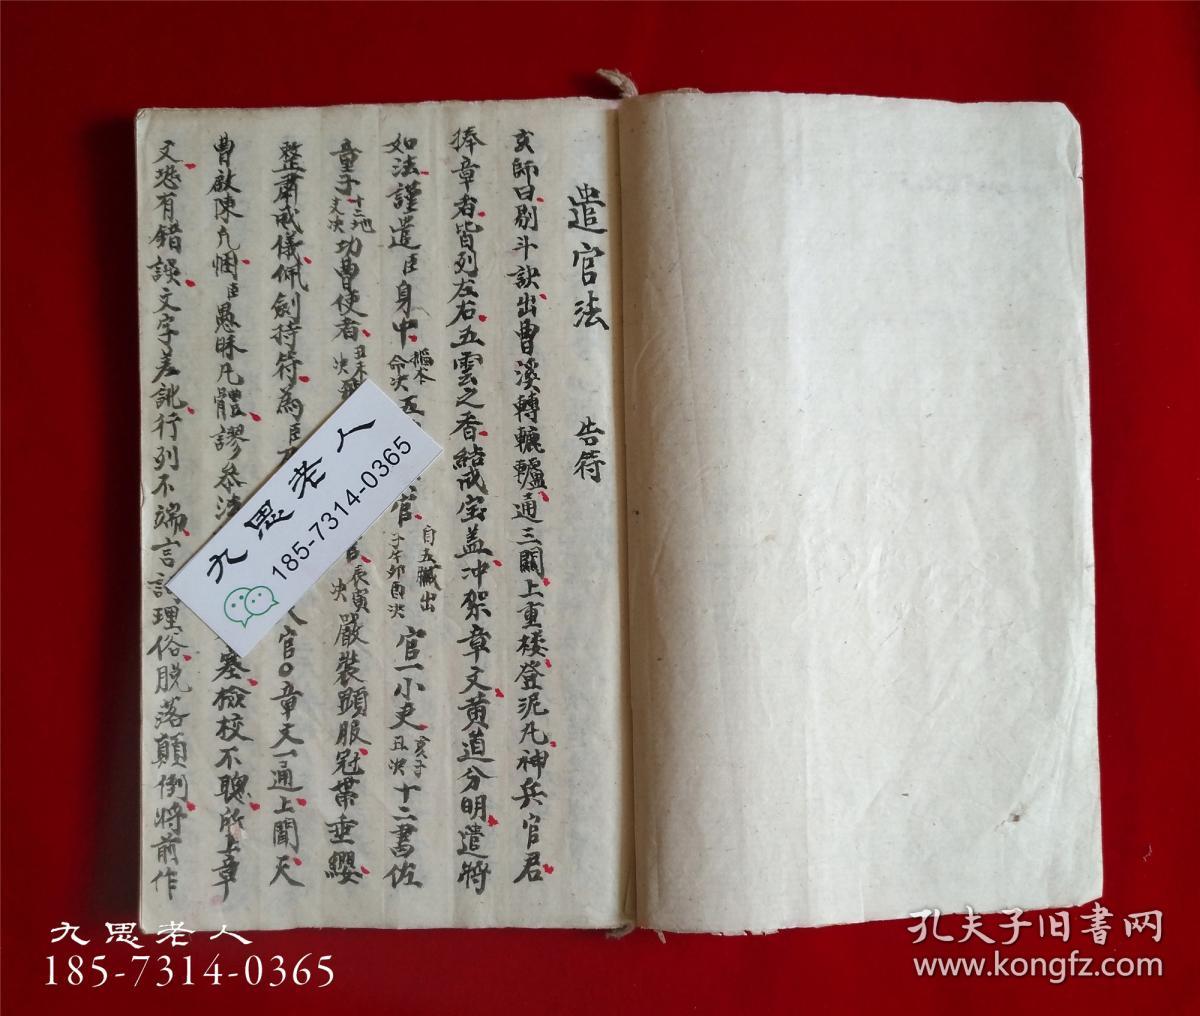 遣官法 告符
玄師曰剔斗訣出曹溪轉轆轤通三關上重樓登泥凡神兵官君
捧章者皆列左右五雲之香結成宝盖冲架章文黄道分明遣將
如法謹遣臣身中 命决 五 官 自五臟出 子午卯酉决 官一小吏 亥子丑决 十二書佐
童子 十二地支决 功曹使者 丑未 决 辰寅 决 嚴裝顕服冠帶垂纓
整肅威儀佩劍持符為臣 官〇章文一通上聞天
曹啟陳凡悃臣愚昧凡體謬叅法 塞檢校不聰所上章
文恐有錯誤文字差訛行列不端言 理俗脱落顛倒將前作
九思老人
185-7314-0365
九思老人
185-7314-0365
孔夫子旧書网
www.kongfz.com